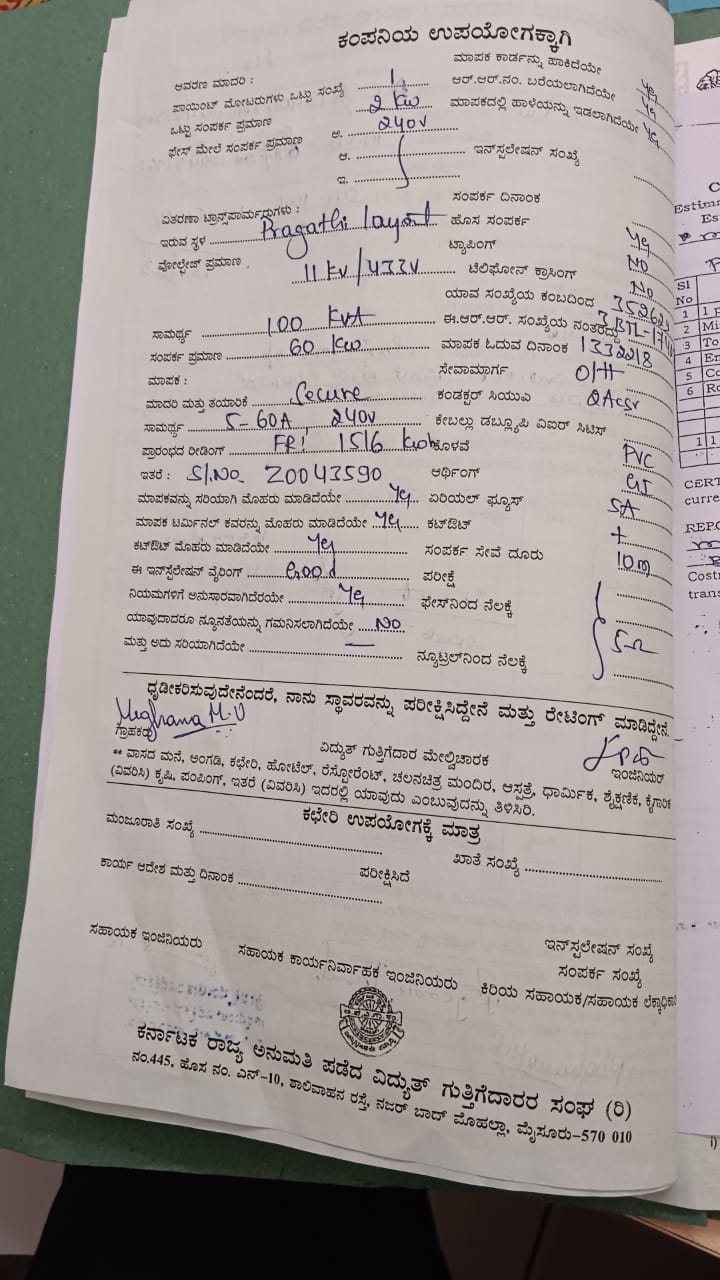 ಕಂಪನಿಯ ಉಪಯೋಗಕ್ಕಾಗಿ
ಆವರಣ ಮಾದರಿ : ಮಾಪಕ ಕಾರ್ಡನ್ನು ಹಾಕಿದೆಯೇ Yes
ಪಾಯಿಂಟ್ ಮೋಟರುಗಳು ಒಟ್ಟು ಸಂಖ್ಯೆ 1 ಆರ್.ಆರ್.ನಂ. ಬರೆಯಲಾಗಿದೆಯೇ Yes
ಒಟ್ಟು ಸಂಪರ್ಕ ಪ್ರಮಾಣ 2 Kw ಮಾಪಕದಲ್ಲಿ ಹಾಳೆಯನ್ನು ಇಡಲಾಗಿದೆಯೇ Yes
ಫೇಸ್ ಮೇಲೆ ಸಂಪರ್ಕ ಪ್ರಮಾಣ ಅ. 240V
ಆ. ಇನ್‌ಸ್ಟಲೇಷನ್ ಸಂಖ್ಯೆ
ಇ.
ಸಂಪರ್ಕ ದಿನಾಂಕ
ವಿತರಣಾ ಟ್ರಾನ್ಸ್‌ಪಾರ್ಮರುಗಳು :
ಇರುವ ಸ್ಥಳ Pragathi Layout ಹೊಸ ಸಂಪರ್ಕ Yes
ಟ್ಯಾಪಿಂಗ್ NO
ವೋಲ್ಟೇಜ್ ಪ್ರಮಾಣ 11 KV / 433V ಟೆಲಿಫೋನ್ ಕ್ರಾಸಿಂಗ್ No
ಯಾವ ಸಂಖ್ಯೆಯ ಕಂಬದಿಂದ
ಸಾಮರ್ಥ್ಯ 100 KVA ಈ.ಆರ್.ಆರ್. ಸಂಖ್ಯೆಯ ನಂತರದ್ದು
ಸಂಪರ್ಕ ಪ್ರಮಾಣ 60 Kw ಮಾಪಕ ಓದುವ ದಿನಾಂಕ
ಮಾಪಕ : ಸೇವಾಮಾರ್ಗ O/H
ಮಾದರಿ ಮತ್ತು ತಯಾರಿಕೆ Secure ಕಂಡಕ್ಟರ್ ಸಿಯುಎ
ಸಾಮರ್ಥ್ಯ 5-60A, 240V ಕೇಬಲ್ಲು ಡಬ್ಲ್ಯೂಪಿ ವಿಐಆರ್ ಸಿಟಿಸ್
ಪ್ರಾರಂಭದ ರೀಡಿಂಗ್ FR! 1516 kwh ಕೊಳವೆ PVC
ಇತರೆ : Sl.No. Z0043590 ಆರ್ಥಿಂಗ್ GI
ಮಾಪಕವನ್ನು ಸರಿಯಾಗಿ ಮೊಹರು ಮಾಡಿದೆಯೇ Yes ಏರಿಯಲ್ ಫ್ಯೂಸ್ 5A
ಮಾಪಕ ಟರ್ಮಿನಲ್ ಕವರನ್ನು ಮೊಹರು ಮಾಡಿದೆಯೇ Yes ಕಟ್‌ಔಟ್ +
ಕಟ್‌ಔಟ್ ಮೊಹರು ಮಾಡಿದೆಯೇ Yes ಸಂಪರ್ಕ ಸೇವೆ ದೂರು 10m
ಈ ಇನ್‌ಸ್ಟೆಲೇಷನ್ ವೈರಿಂಗ್ Good ಪರೀಕ್ಷೆ
ನಿಯಮಗಳಿಗೆ ಅನುಸಾರವಾಗಿದೆರಯೇ Yes ಫೇಸ್‌ನಿಂದ ನೆಲಕ್ಕೆ
ಯಾವುದಾದರೂ ನ್ಯೂನತೆಯನ್ನು ಗಮನಿಸಲಾಗಿದೆಯೇ No
ಮತ್ತು ಅದು ಸರಿಯಾಗಿದೆಯೇ — ನ್ಯೂಟ್ರಲ್‌ನಿಂದ ನೆಲಕ್ಕೆ
ಧೃಡೀಕರಿಸುವುದೇನೆಂದರೆ, ನಾನು ಸ್ಥಾವರವನ್ನು ಪರೀಕ್ಷಿಸಿದ್ದೇನೆ ಮತ್ತು ರೇಟಿಂಗ್ ಮಾಡಿದ್ದೇನೆ.
Meghana M.V
ಗ್ರಾಹಕರು ವಿದ್ಯುತ್ ಗುತ್ತಿಗೆದಾರ ಮೇಲ್ವಿಚಾರಕ ಇಂಜಿನಿಯರ್
** ವಾಸದ ಮನೆ, ಅಂಗಡಿ, ಕಛೇರಿ, ಹೋಟೆಲ್, ರೆಸ್ಟೋರೆಂಟ್, ಚಲನಚಿತ್ರ ಮಂದಿರ, ಆಸ್ಪತ್ರೆ, ಧಾರ್ಮಿಕ, ಶೈಕ್ಷಣಿಕ, ಕೈಗಾರಿಕ
(ವಿವರಿಸಿ) ಕೃಷಿ, ಪಂಪಿಂಗ್, ಇತರೆ (ವಿವರಿಸಿ) ಇದರಲ್ಲಿ ಯಾವುದು ಎಂಬುವುದನ್ನು ತಿಳಿಸಿರಿ.
ಕಛೇರಿ ಉಪಯೋಗಕ್ಕೆ ಮಾತ್ರ
ಮಂಜೂರಾತಿ ಸಂಖ್ಯೆ ಖಾತೆ ಸಂಖ್ಯೆ
ಕಾರ್ಯ ಆದೇಶ ಮತ್ತು ದಿನಾಂಕ ಪರೀಕ್ಷಿಸಿದೆ
ಇನ್‌ಸ್ಟಲೇಷನ್ ಸಂಖ್ಯೆ
ಸಂಪರ್ಕ ಸಂಖ್ಯೆ
ಸಹಾಯಕ ಇಂಜಿನಿಯರು ಸಹಾಯಕ ಕಾರ್ಯನಿರ್ವಾಹಕ ಇಂಜಿನಿಯರು ಕಿರಿಯ ಸಹಾಯಕ/ಸಹಾಯಕ ಲೆಕ್ಕಾಧಿಕಾರಿ
ಕರ್ನಾಟಕ ರಾಜ್ಯ ಅನುಮತಿ ಪಡೆದ ವಿದ್ಯುತ್ ಗುತ್ತಿಗೆದಾರರ ಸಂಘ (ರಿ)
ನಂ.445, ಹೊಸ ನಂ. ಎನ್-10, ಶಾಲಿವಾಹನ ರಸ್ತೆ, ನಜರ್ ಬಾದ್ ಮೊಹಲ್ಲಾ, ಮೈಸೂರು-570 010
Sl
No
1
2
3 To
4
5
6